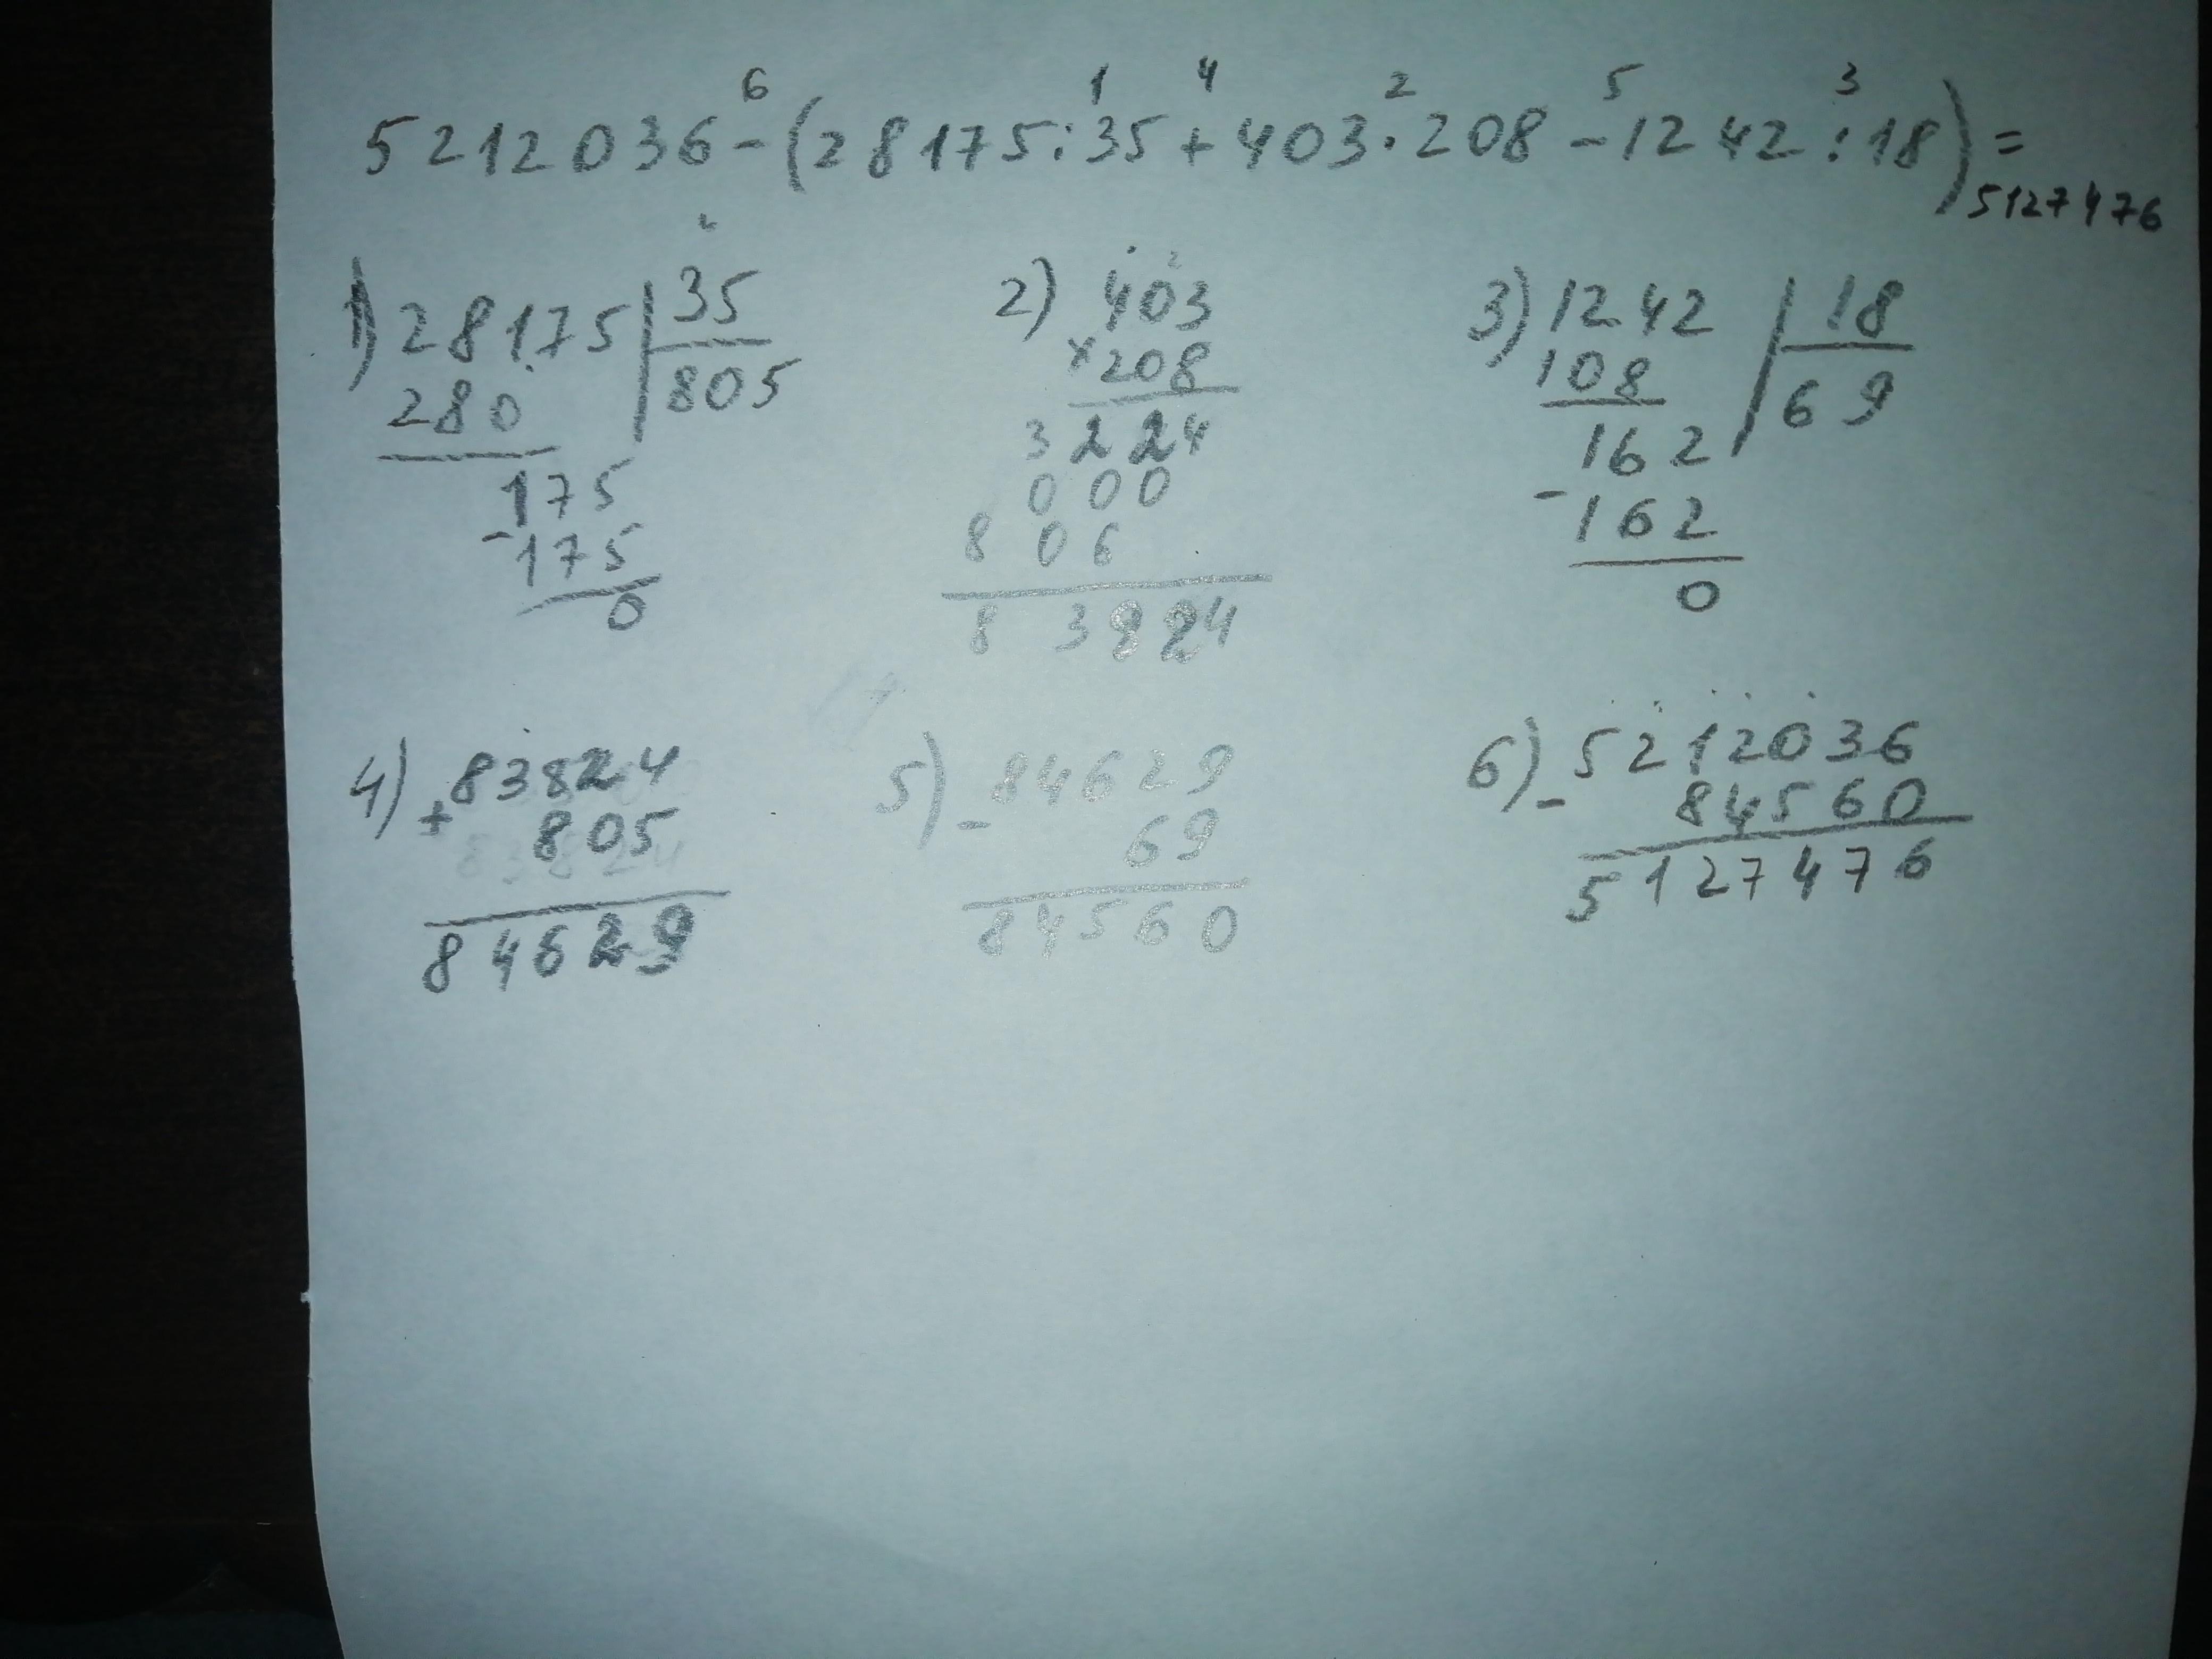 6 1 4 2 5 3
5212036-(28175:35+403·208-1242:18)=
5127476
1) 28175 35
280 805
175
-175
0
2) 403
×208
3224
000
806
83824
3) 1242 18
108 69
162
-162
0
4) +83824
805
84629
5) -84629
69
84560
6) -5212036
84560
5127476